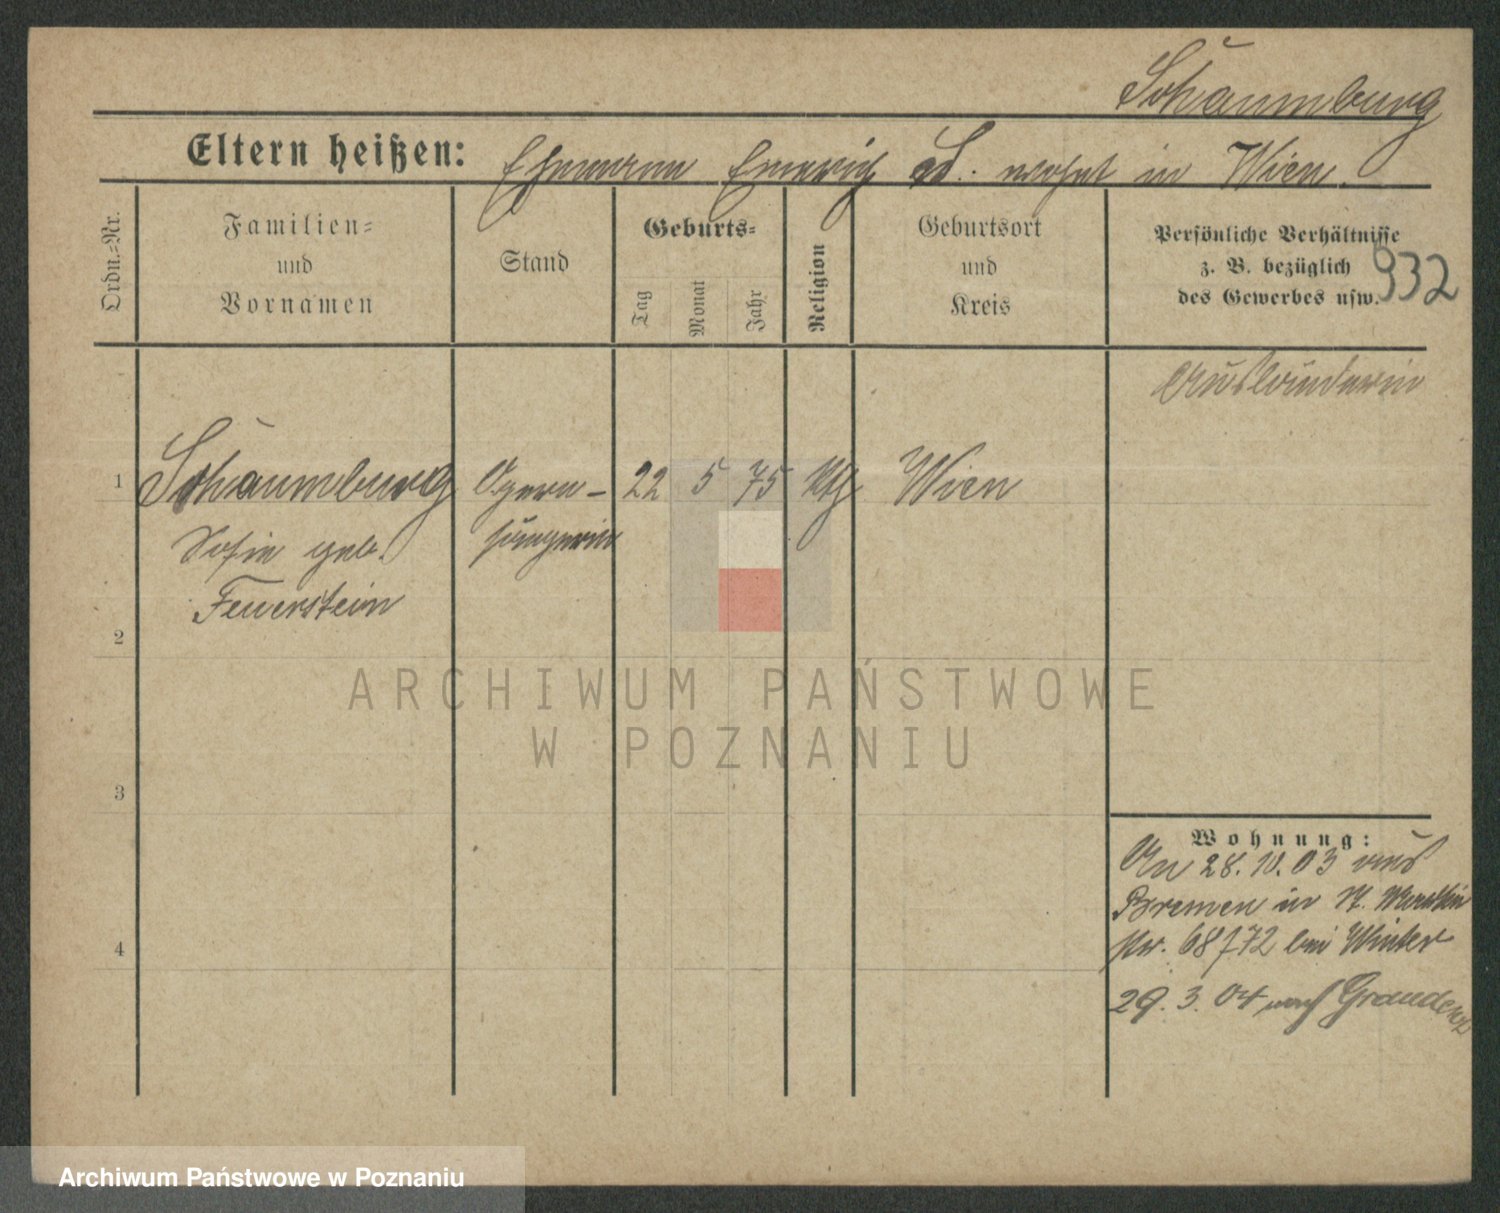 Schaumburg
Eltern heißen: Ehemann Emerich Sch. wohnt in Wien.
Ordn.=Nr.
Familien=
und
Vornamen
Stand
Geburts=
Tag
Monat
Jahr
Religion
Geburtsort
und
Kreis
Persönliche Verhältnisse
z. B. bezüglich
des Gewerbes usw.
932
Ausländerin
1 Schaumburg Opern- 22 5 75 Wien
Sofie geb. sängerin
Feuerstein
2
3
4
ARCHIWUM PAŃSTWOWE
W POZNANIU
Wohnung:
An 28.10.03 aus
Bremen in St. Martin
Nr. 68/72 bei Winter
29.3.04 nach Graudenz
Archiwum Państwowe w Poznaniu